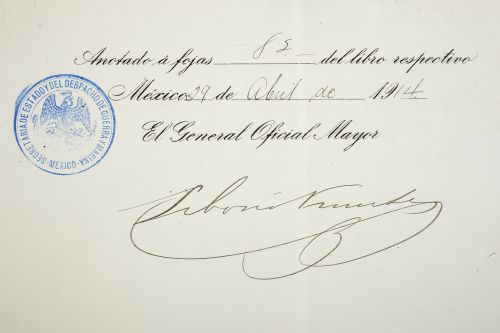 Anotado á fojas 82 del libro respectivo
México 29 de Abril de 1914
El General Oficial Mayor
SECRETARIA DE ESTADO Y DEL DESPACHO DE GUERRA Y MARINA
MEXICO